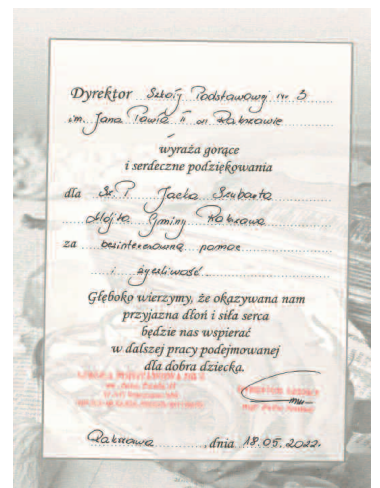 Dyrektor Szkoły Podstawowej nr 3
im. Jana Pawła II w
wyraża gorące
i serdeczne podziękowania
dla Sz. P. Jacka
Wójta Gminy
za bezinteresowną pomoc
i życzliwość
Głęboko wierzymy, że okazywana nam
przyjazna dłoń i siła serca
będzie nas wspierać
w dalszej pracy podejmowanej
dla dobra dziecka.
dnia 18.05.2022r.